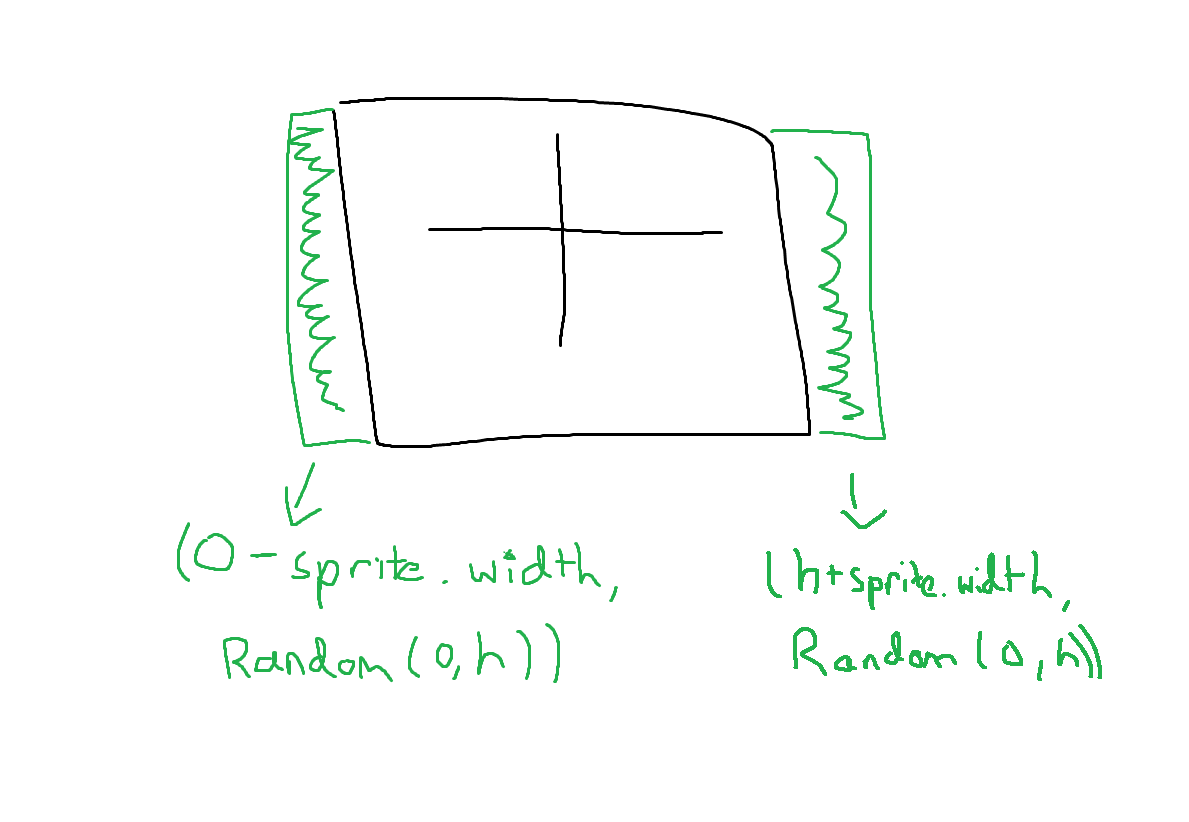 (0-sprite.width,
Random(0,h))
(h+sprite.width,
Random(0,h))